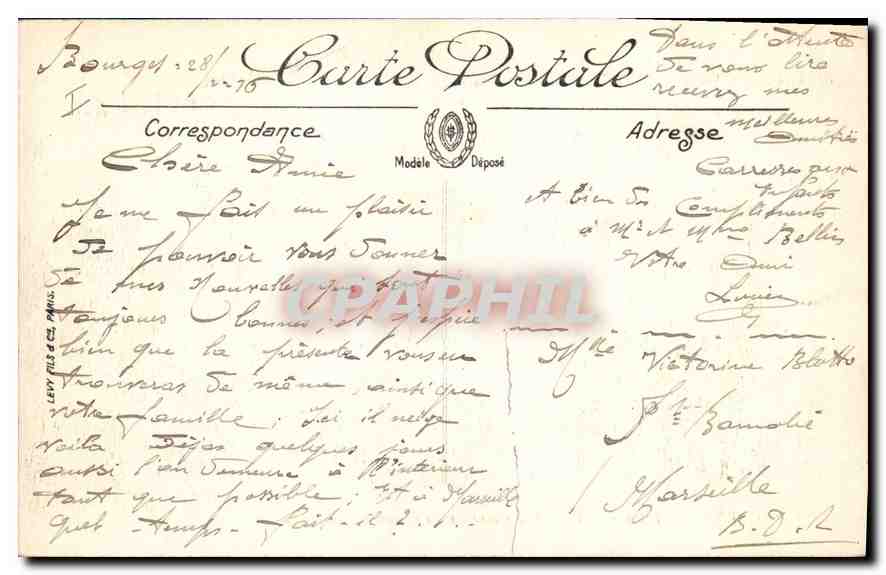 Bourges - 28/
Carte Postale
Correspondance
Modèle Déposé
Adresse
LEVY FILS & Cie, PARIS.
CPAPHIL
Chère Amie
Je me fait un plaisir
de pouvoir vous donner
de mes Nouvelles qui sont
toujours bonnes, et j'espère
bien que la présente vous en
trouveras de même, ainsi que
votre famille; Ici il neige
voila déjas quelques jours
aussi l'on demeure à l'interieur
tant que possible; Et à Marseille
quel - temps - fait - il ?
Dans l'attente
de vous lire
recevez mes
meilleures
Amitiés
Caresses aux
enfants
A bien des Compliments
à Mr et Mme Bellin
Votre Ami
Lucien
Mlle Victorine Blotto
St Barnabé
Marseille
B. D. R